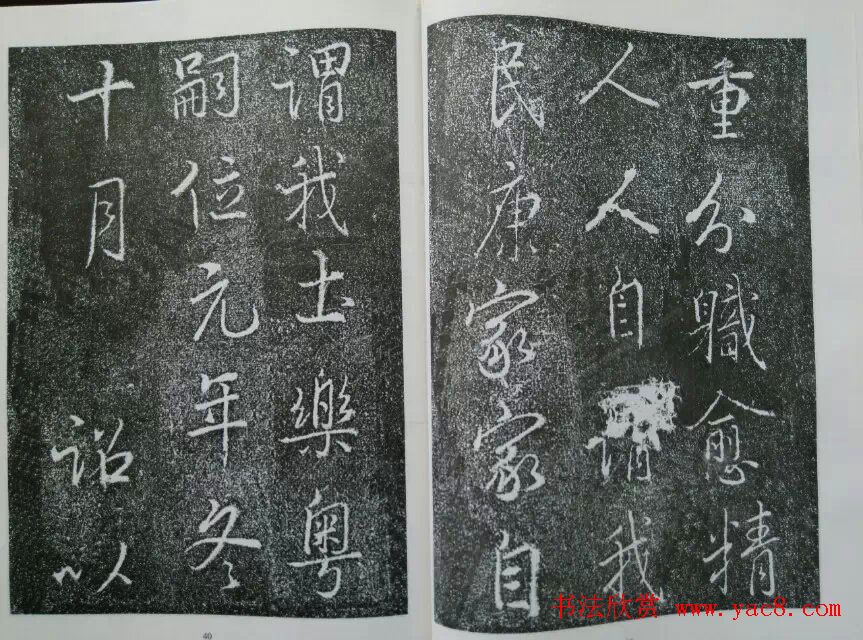 重分職愈精
人人自謂我
民康家家自
謂我土樂粵
嗣位元年冬
十月詔以
40
书法欣赏 www.yac8.com